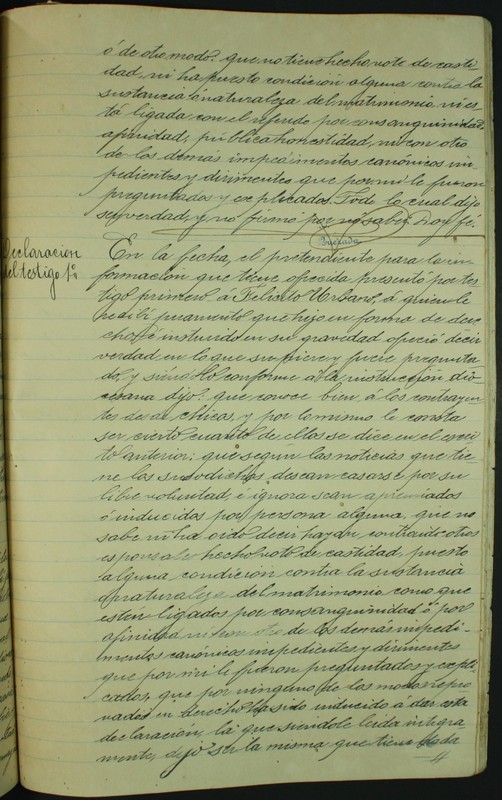 ó de otro modo: que no tiene hecho voto de casti-
dad, ni ha puesto condición alguna contra la
sustancia ó naturaleza del matrimonio ni es-
tá ligada con el referido por consanguinidad,
afinidad, pública honestidad, ni con otro
de los demás impedimentos canónicos im-
pedientes y dirimentes que por mí le fueron
preguntados y explicados. Todo lo cual dijo
ser verdad, y no firmó por no saber. Doy fé.
Quesada
Declaracion
del testigo 1º
En la fecha, el pretendiente para la in-
formación que tiene ofrecida presentó por tes-
tigo primero á Felicito Urbano, á quien le
recibí juramento que hizo en forma de dere-
cho, é instruido en su gravedad ofreció decir
verdad en lo que supiere y fuere pregunta-
do, y siéndolo conforme á la instrucción dio-
cesana dijo: que conoce bien á los contrayen-
tes desde chicos, y por lo mismo le consta
ser cierto cuanto de ellos se dice en el escri-
to anterior: que segun las noticias que tie-
ne los susodichos desean casarse por su
libre voluntad, é ignora sean apremiados
ó inducidos por persona alguna, que no
sabe ni ha oido decir hayan contraido otros
esponsales hecho voto de castidad, puesto
alguna condición contra la sustancia
ó naturaleza del matrimonio como que
estén ligados por consanguinidad ó por
afinidad ni con otro de los demás impedi-
mentos canónicos impedientes y dirimentes
que por mí le fueron preguntados y expli-
cados, que por ninguno de los modos repro-
vados en derecho ha sido inducido á dar esta
declaración, la que siendole leida integra-
mente, dijo ser la misma que tiene dada